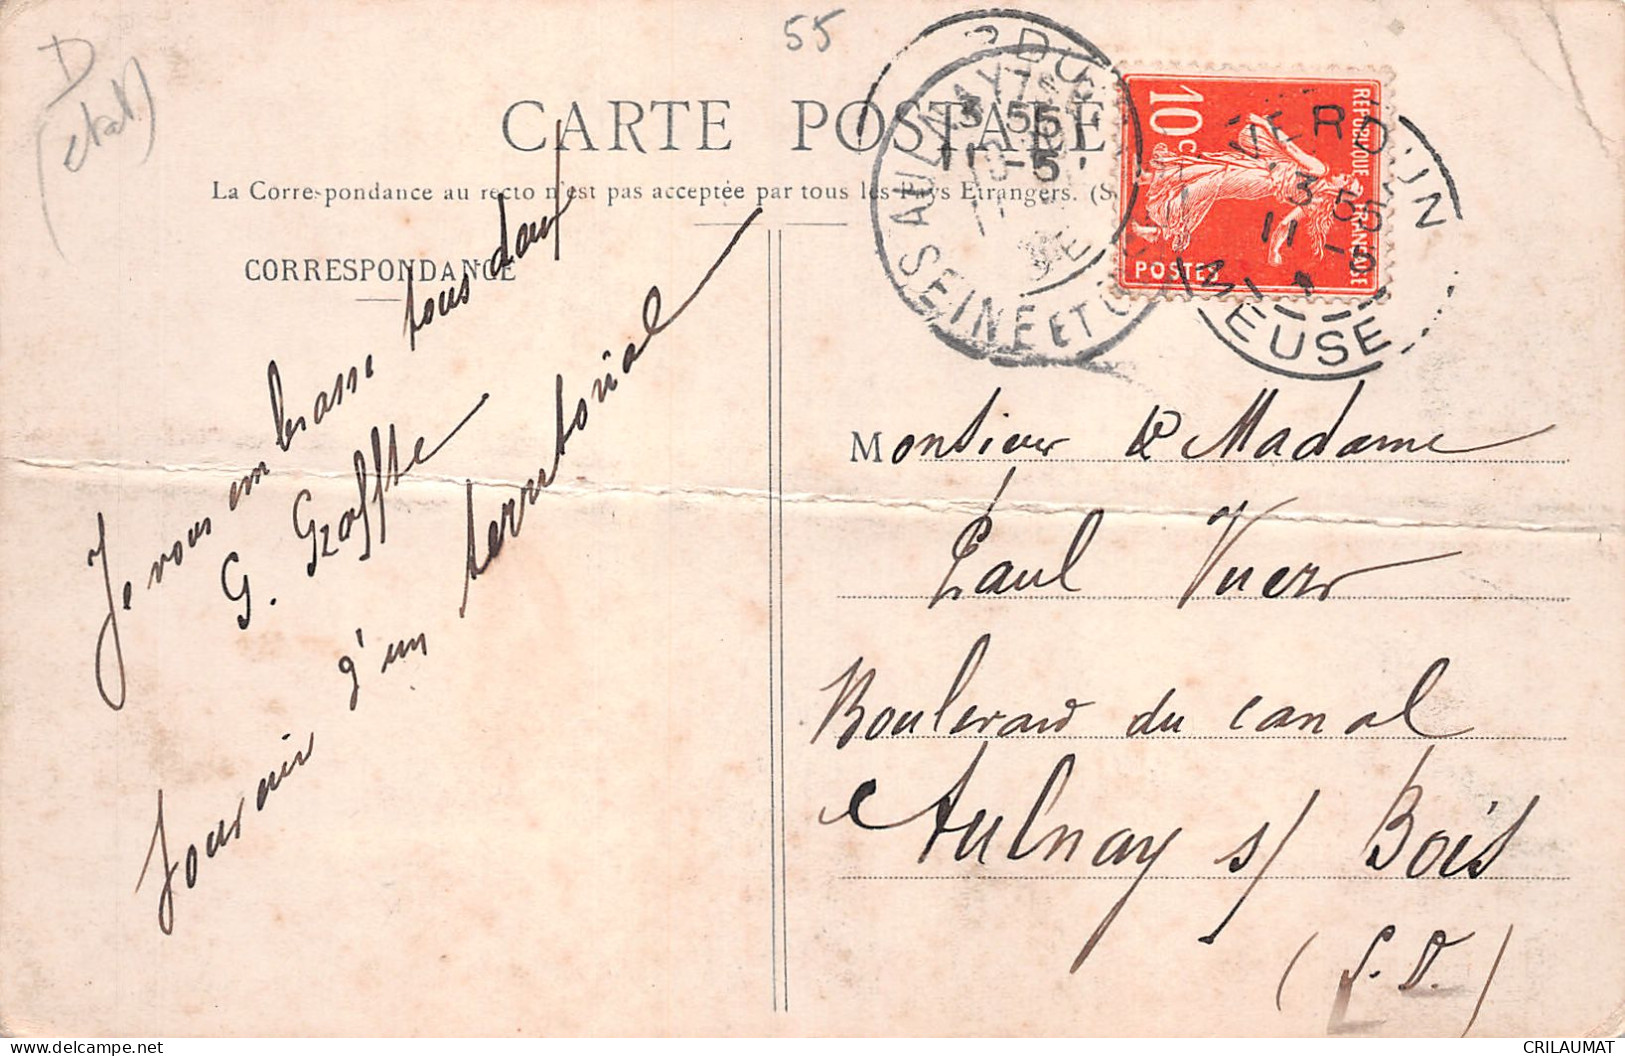 55
D
(état)
CARTE POSTALE
La Correspondance au recto n'est pas acceptée par tous les Pays Etrangers. (S
CORRESPONDANCE
Je vous embrasse tous deux
G.
Souvenir d'un territorial
Monsieur & Madame
Paul
Boulevard du Canal
Aulnay s/ Bois
(S.-O.)
AULNAY
SEINE ET O
3 55
11 - 5
VERDUN
3 55
11 - 5
MEUSE
REPUBLIQUE FRANÇAISE
10c
POSTES
CRILAUMAT